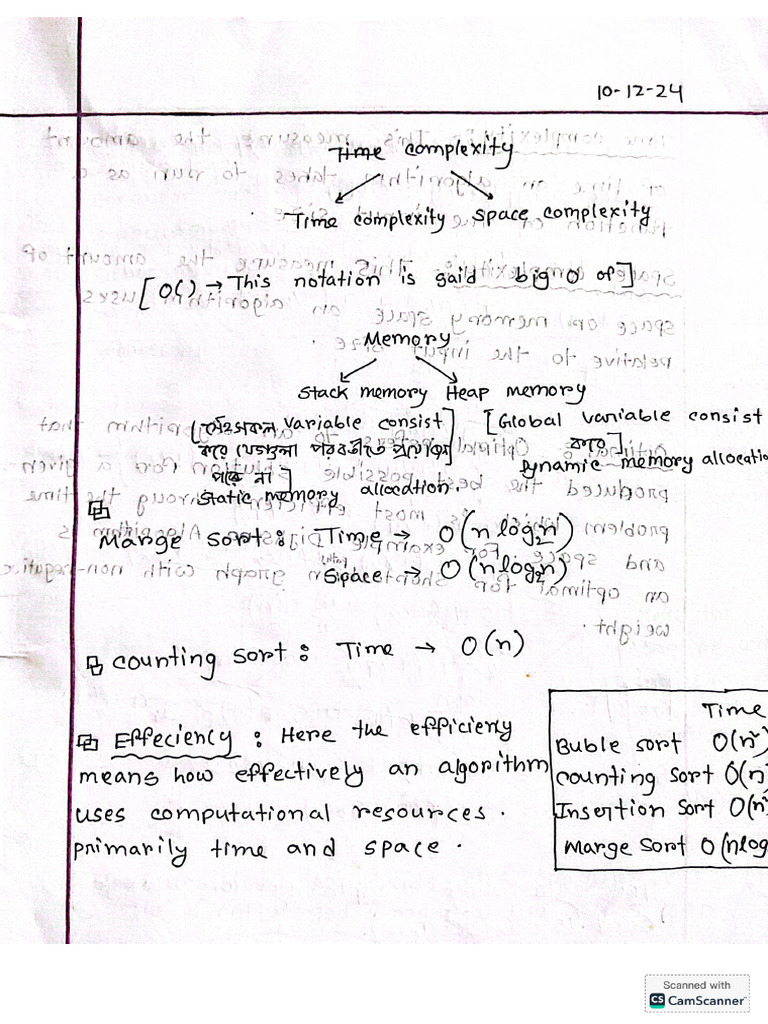 10-12-24
Time complexity
Time complexity space complexity
[O() → This notation is said big O of]
Memory
Stack memory Heap memory
[ variable consist] [Global variable consist
করে যেগুলা পরবর্তীতে করে]
পারে না] Dynamic memory allocatio
Static memory allocation.
Marge sort : Time → O(n log₂n)
Space → O(n log₂n)
counting sort : Time → O(n)
Effeciency : Here the efficiency
means how effectively an algorithm
uses computational resources.
primarily time and space.
Time
Buble sort O(n²)
counting sort O(n)
Insertion sort O(n²
Marge sort O(nlog
Scanned with
CS CamScanner